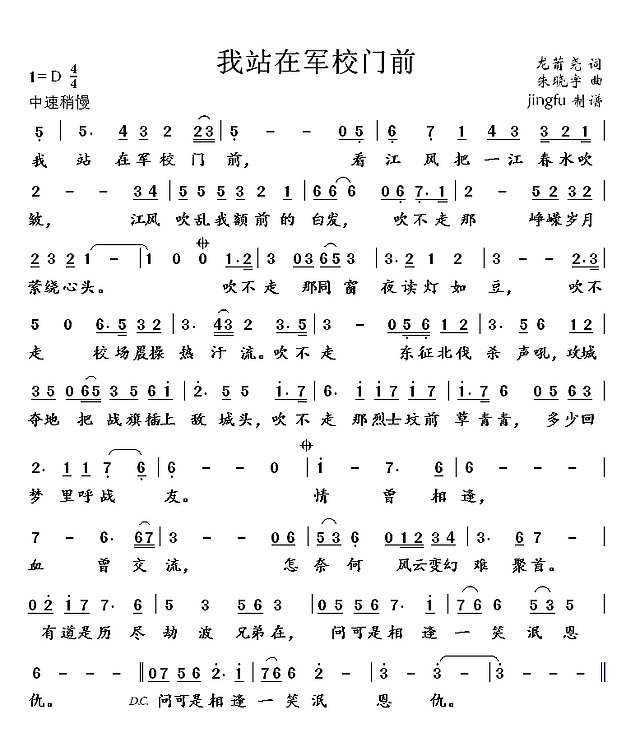 我站在军校门前
1=D 4/4
龙箭尧 词
中速稍慢
朱晓宇 曲
jingfu 制谱
5 | 5· 4 3 2 23 | 5 - - 05 | 6 7 1 43 321 |
我 站 在军校 门 前, 看 江 风把 一江 春水吹
2 - - 34 | 5553 2 1 | 66 6 06 7·1 | 2 - 52 32 |
皱, 江风 吹乱我额前 的 白发, 吹不走 那 峥嵘岁月
23 2 1 - | 1 0 0 1·2 | 3 03 65 3 | 3· 2 1 2 | 3 - - 2·3 |
萦绕心头。 吹不 走 那同窗 夜读灯 如 豆, 吹不
5 0 6·5 32 | 3· 43 2 3·5 | 3 - 056 6 | 0 6 12 |
走 校场晨操 热 汗 流。吹不 走 东征北伐 杀 声吼,攻城
35 065 35 61 | 2· 5 5 1·7 | 6· 5 67 1 | 1·7 6 05 63 |
夺地 把 战旗插上 敌 城头,吹不 走 那烈士坟前 草 青青, 多少回
2· 11 7 6 | 6 - - 0 | 1 - 7· 6 | 6 - - - |
梦 里呼战 友。 情 曾 相 逢,
7 - 6· 67 | 3 - - 06 | 53 6 01234 | 3· 67 - |
血 曾 交 流, 怎 奈 何 风云变幻 难 聚首。
02 17 7· 6 | 5 3 563 | 05 61 1· 1 | 766 533 |
有道是历 尽 劫 波 兄弟在, 问可是相 逢 一 笑 泯 恩
6 - - - ‖ 07 56 2· 1 | 766 2· 2 | 3 - 3 - | 3 - - - ‖
仇。 D.C. 问可是相 逢 一 笑 泯 恩 仇。